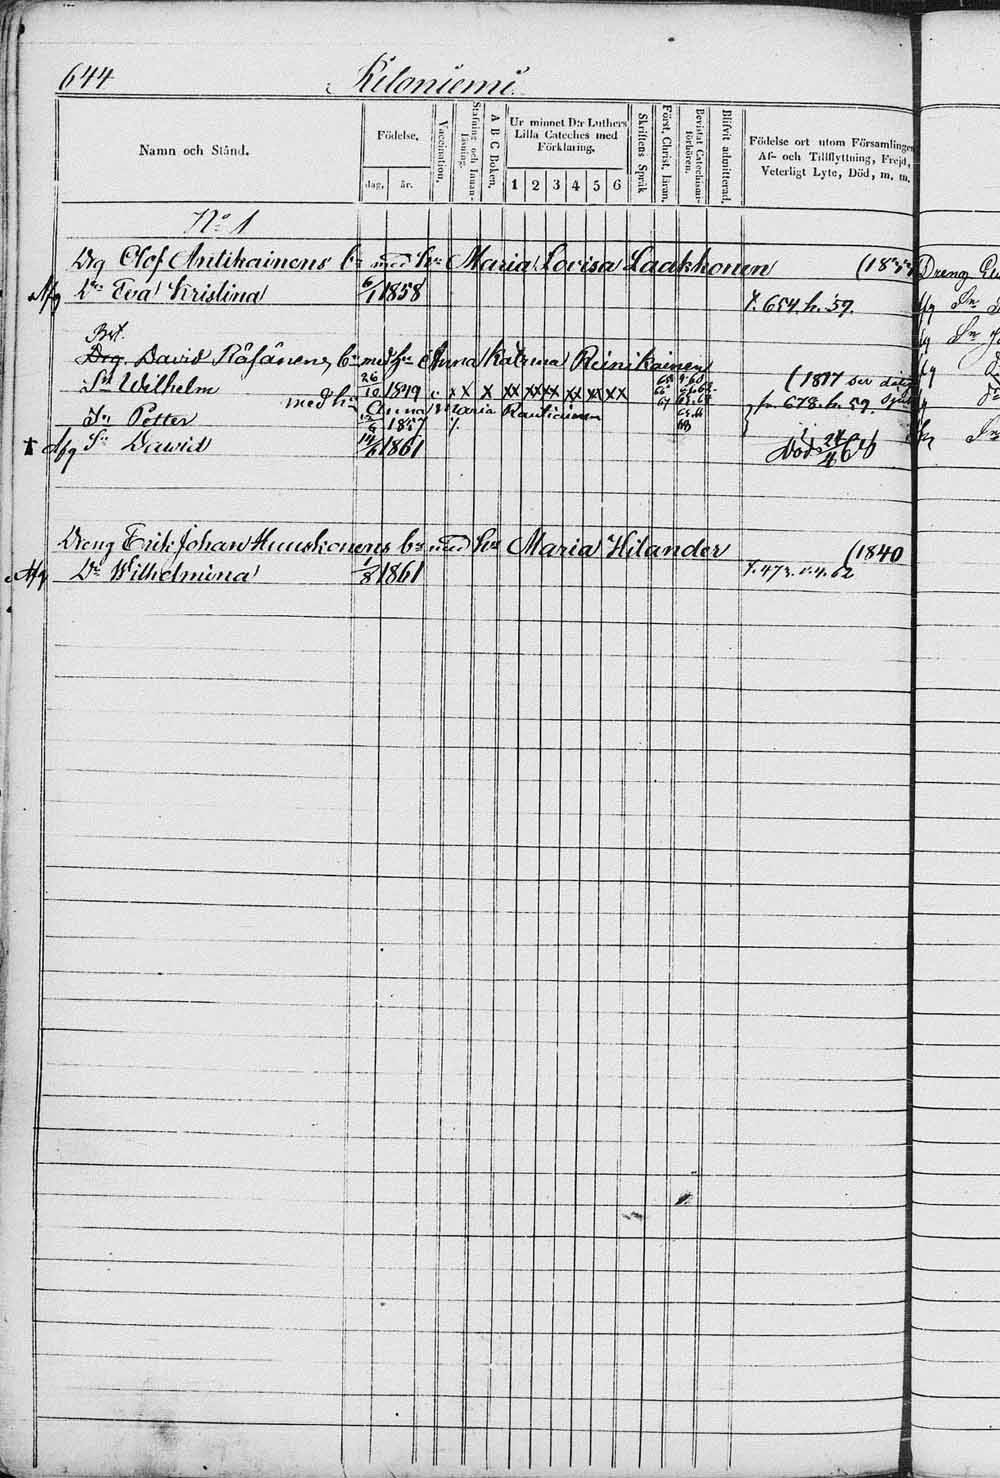 644 Kiloniemi
Namn och Stånd. Födelse. dag. år. Vaccination. Stafning och Innan-läsning. A B C Boken. Ur minnet D:r Luthers Lilla Cateches med Förklaring. 1 2 3 4 5 6 Skriftens Språk Först. Christ. läran. Bevistat Catechismi-förhören. Blifvit admitterad. Födelse ort utom Församlingen Af- och Tillflyttning, Frejd, Veterligt Lyte, Död, m. m.
No 1
Drg Olof Antikainens bn med hu Maria Lovisa Laakkonen
Afg Dr Eva Kristina 6/1 1858 f. 654. h. 59.
Bst.
Drg. David Räsänens bn med hu Anna Katrina Reinikainen
Sn Wilhelm 26/10 1849 x x x xx xx xx xx xx xx
med hu Anna Maria Rautiainen 678. h. 59.
Sn Petter 1857
† Afg Sn Dawid 14/6 1861 Död 24/4
Dreng Erik Johan Huuskonens bn med hu Maria Hilander (1840
Afg Dr Wilhelmina 1/8 1861 f. 473. 62